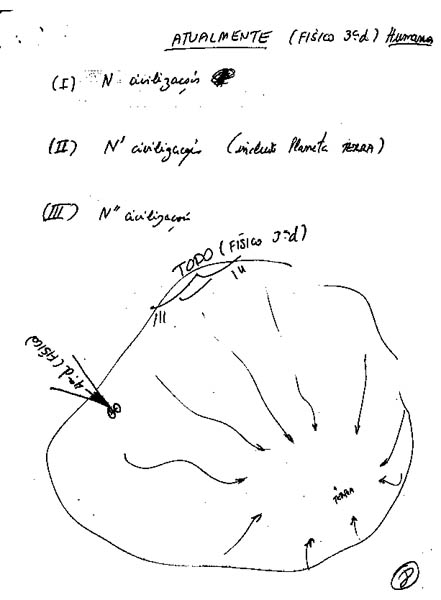 ATUALMENTE (FISICO 3ª d) Humana
(I) N civilizações
(II) N' civilizações (incluso Planeta TERRA)
(III) N" civilizações
TODO (FÍSICO 3ª d)
III
II
4ª d (FÍSICO)
TERRA